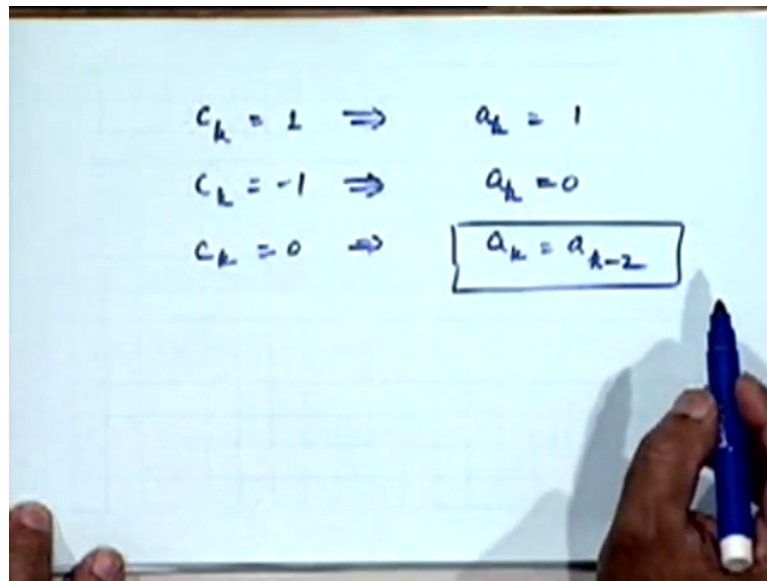 c_k = 1 ⇒ a_k = 1
c_k = -1 ⇒ a_k = 0
c_k = 0 ⇒ a_k = a_{k-2}